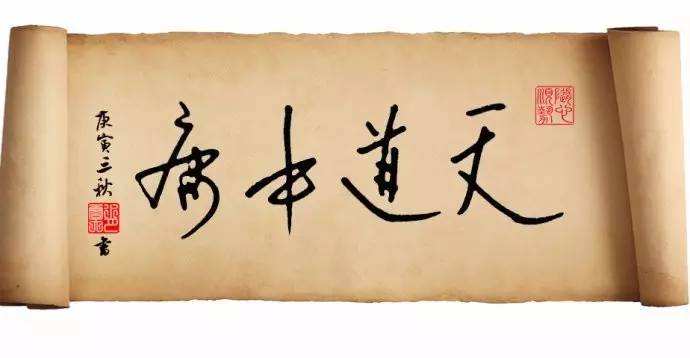 天道中庸
庚寅三秋
書